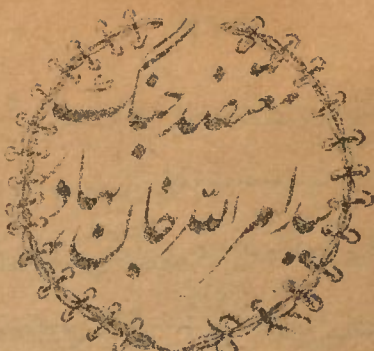 معتضد جنگ
سید امر الله خان بهادر